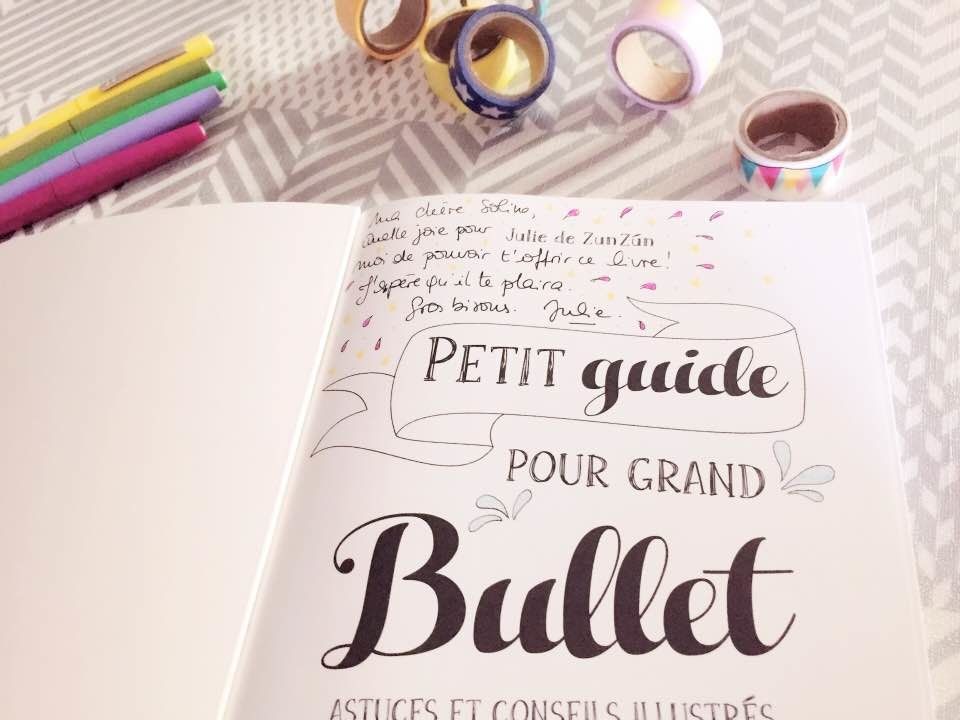 Ma chère Soline,
Quelle joie pour Julie de ZunZún
moi de pouvoir t'offrir ce livre!
J'espère qu'il te plaira.
Gros bisous. Julie.
PETIT guide
POUR GRAND
Bullet
ASTUCES ET CONSEILS ILLUSTRÉS